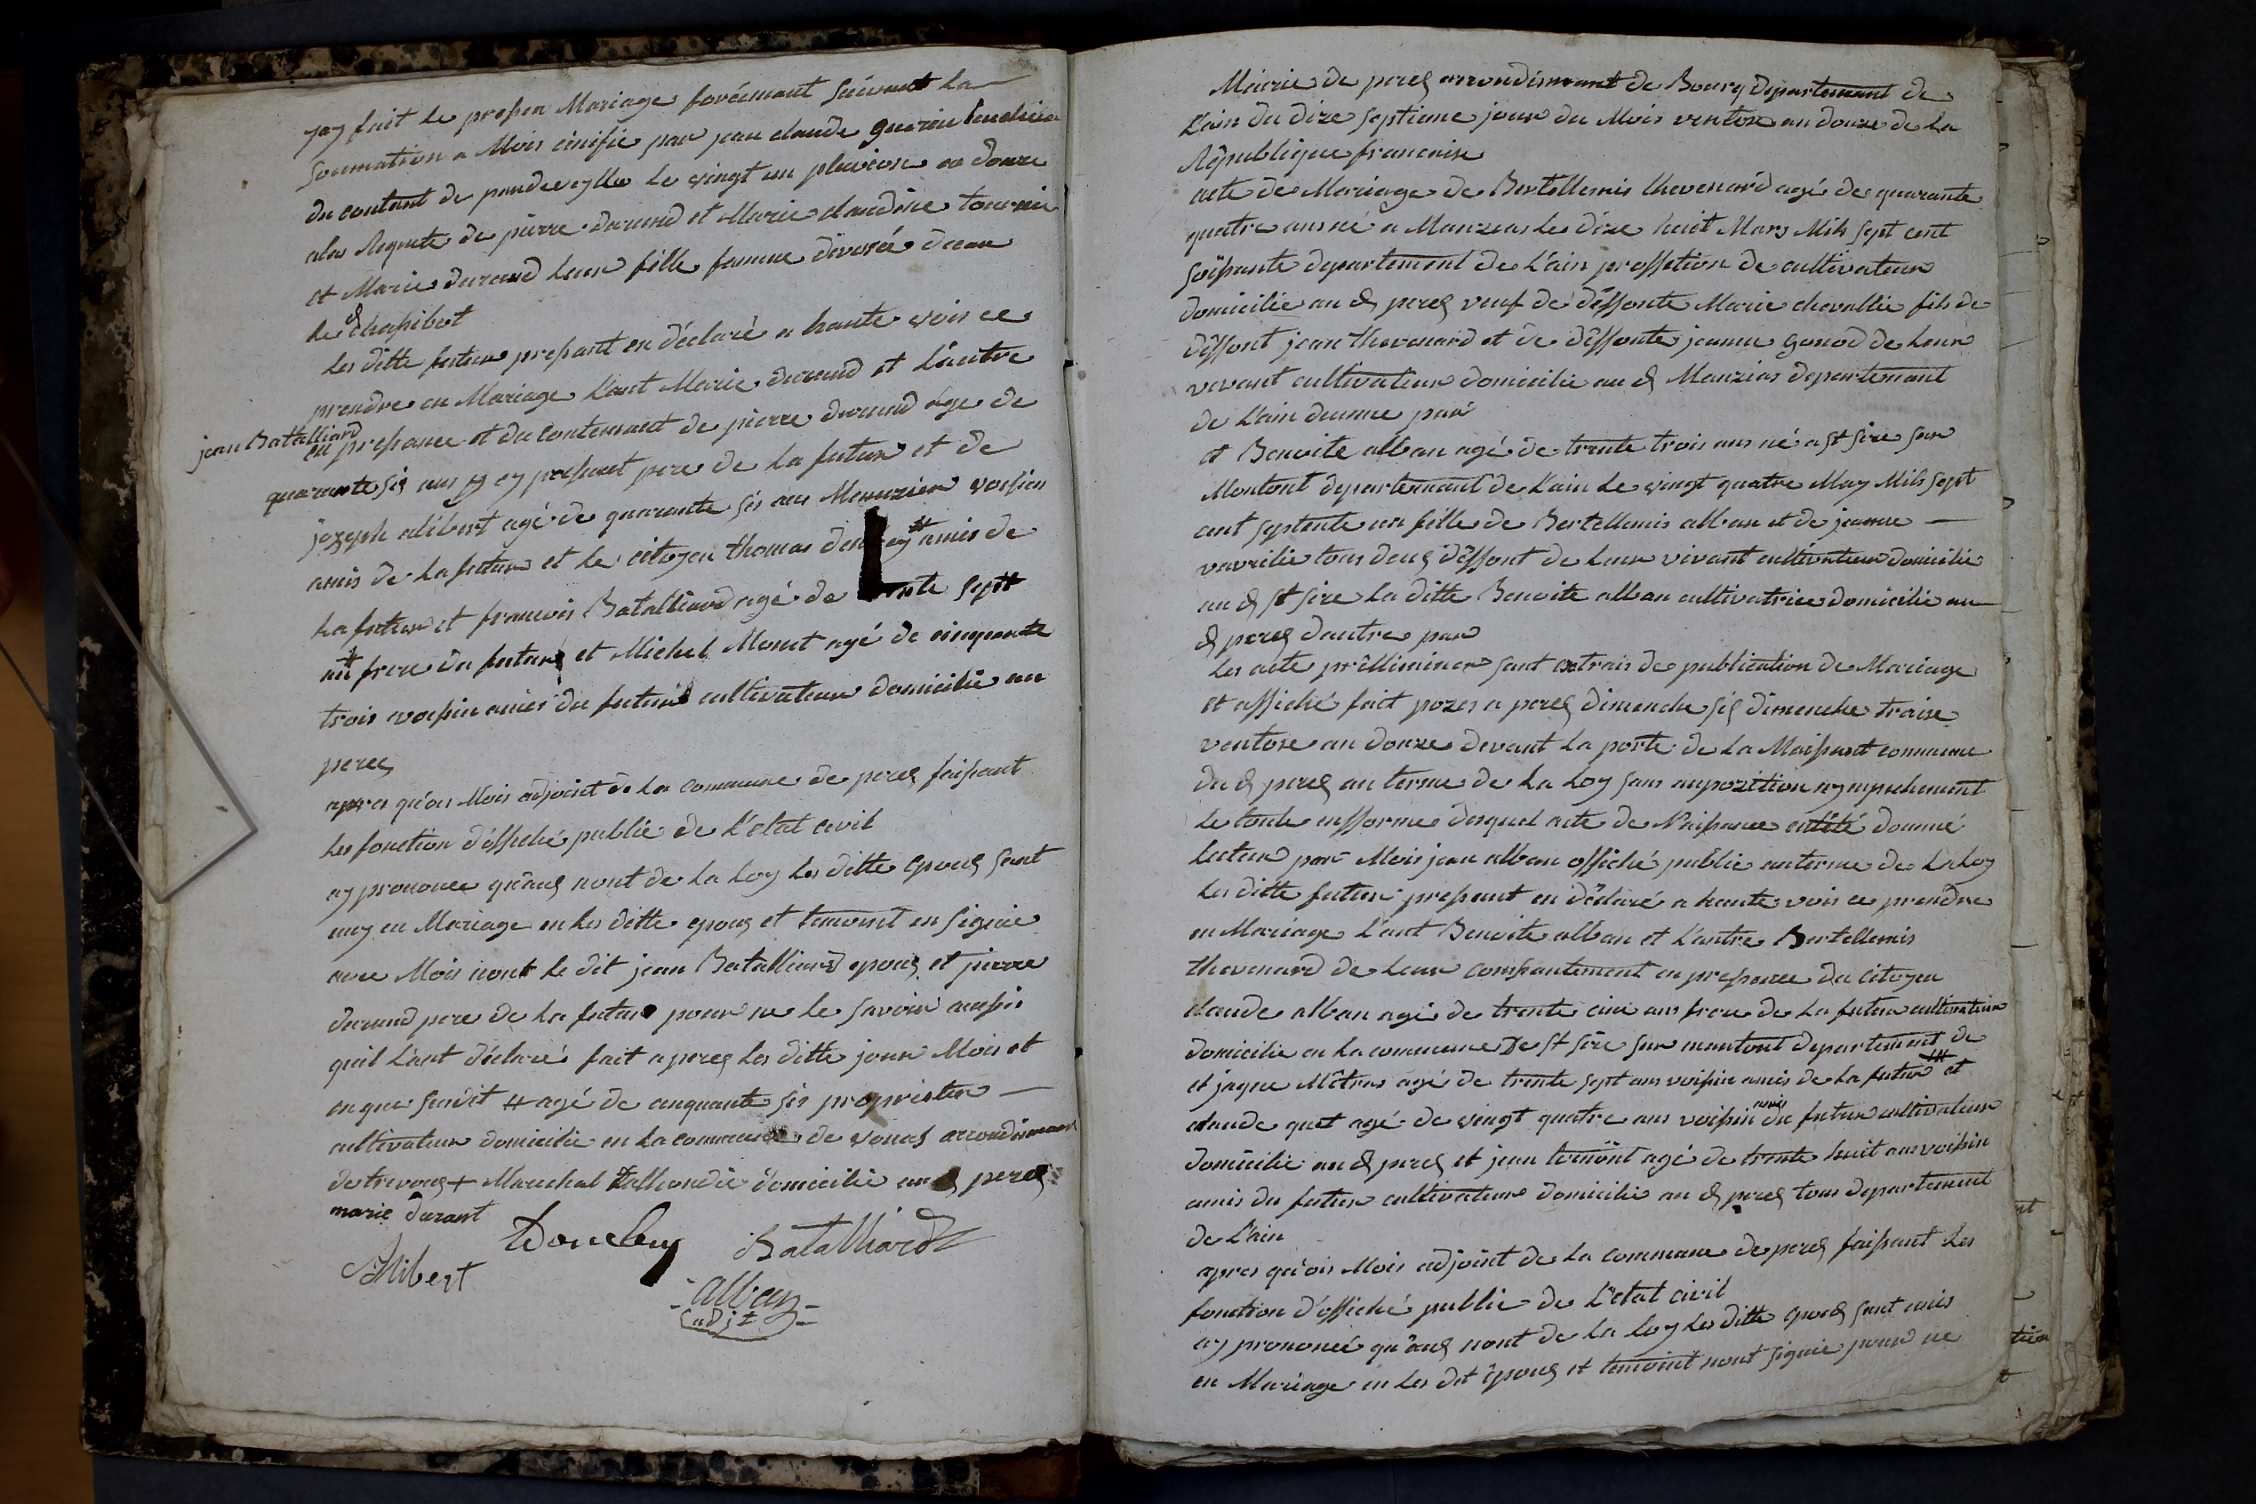 jay fait le presen Mariage forcémant suivant la
Sommation a Mois cinifié par jean claude guerin
du contant de pondeveylle le vingt un pluviose an douze
a la Requete de pierre durand et Marie claudine
et Marie durand leur fille famme divorcée
de
Les ditte futur present en déclaré a haute vois ce
prendre en Mariage L'ant Marie durand et L'autre
jean Batalliard
en presance et du contemment de pierre durand age de
quarante sis ans ey present pere de La futur et de
jozeph alibert agé de quarante sis ans Menuzier voisien
amis de La futur et le citoyen thomas amis de
La futur et francois Batalliard agé de trente sept
frere du futur et Michel Monet agé de cinquante
trois voisin amis du futur cultivateur domicilié au
perex
apres qu'ois Mois adjoint de La commune de perex faisant
Les fonction d'offiché public de L'etat civil
ay prononce qu'aux nont de La Loy Les ditte epoux sont
uny en Mariage en Les ditte epoux et temoint en signié
avec Mois nont le dit jean Batalliard epoux et pierre
durand pere de La futur pour ne le savoir ausis
quil L'ant déclaré fait a perex Les ditte jour Mois et
en que sudit # agé de cinquante sis proprieter
cultivateur domicilié en La commune de vonas arrondismant
de trevoux + Marichal domicilié au d perex
marie durant
Alibert
Batalliard
alban
adjt
Mairie de perex arrondismant de Bourg departement de
L'ain du dixe septieme jour du Mois ventose an douze de La
Republique francoise
acte de Mariage de Bertellemis thevenard agé de quarante
quatre ans né a Manzias le dixe huit Mars Mils sept cent
soisante departement de L'ain profetion de cultivateur
domicilié au d perex veuf de déffonte Marie chevallié fils de
déffont jean thevenard et de déffonte jeanne gonod de Leur
vivant cultivateur domicilié au d Manzias departemant
de L'ain dunne par
et Benoite alban agé de trente trois ans né a st sire sur
Montont departemant de L'ain Le vingt quatre May Mils sept
cent septente un fille de Bertellemis alban et de jeanne
vavrilié tous deux déffont de Leur vivant cultivateur domicilié
au d st sire La ditte Benoite alban cultivatrice domicilié au
d perex dautre par
Les acte prélliminer sont extrais de publication de Mariage
et affiché fait pozer a perex dimenche six dimenche traise
ventose an douze devant La porte de La Maisant commune
du d perex au terme de La Loy sans aupozition ny enpechement
Le toute enfforme desquel acte de Naisance ent été donné
Lecteur par Mois jean alban offiché public au terme de La Loy
Les ditte futur present en déclaré a haute vois ce prendre
en Mariage L'ant Benoite alban et L'autre Bertellemis
thevenard de Leur consantement en presance du citoyen
claude alban agé de trente cinc ans frere de La futur cultivateur
domicilié en La commune De st sire sur montont departement de
et jaque Métras agé de trente sept ans voisin amis de La futur et
claude quet agé de vingt quatre ans voisin amis du futur cultivateur
domicilié au d perex et jean agé de trente huit ans voisin
amis du futur cultivateur domicilié au d perex tous departement
de L'ain
apres qu'ois Mois adjoint de La commune de perex faisant Les
fonction d'offiché public de L'etat civil
ay prononcé qu'aux nont de La Loy Les ditte epoux sont unis
en Mariage en Les dit époux et temoint nont signié pour ne